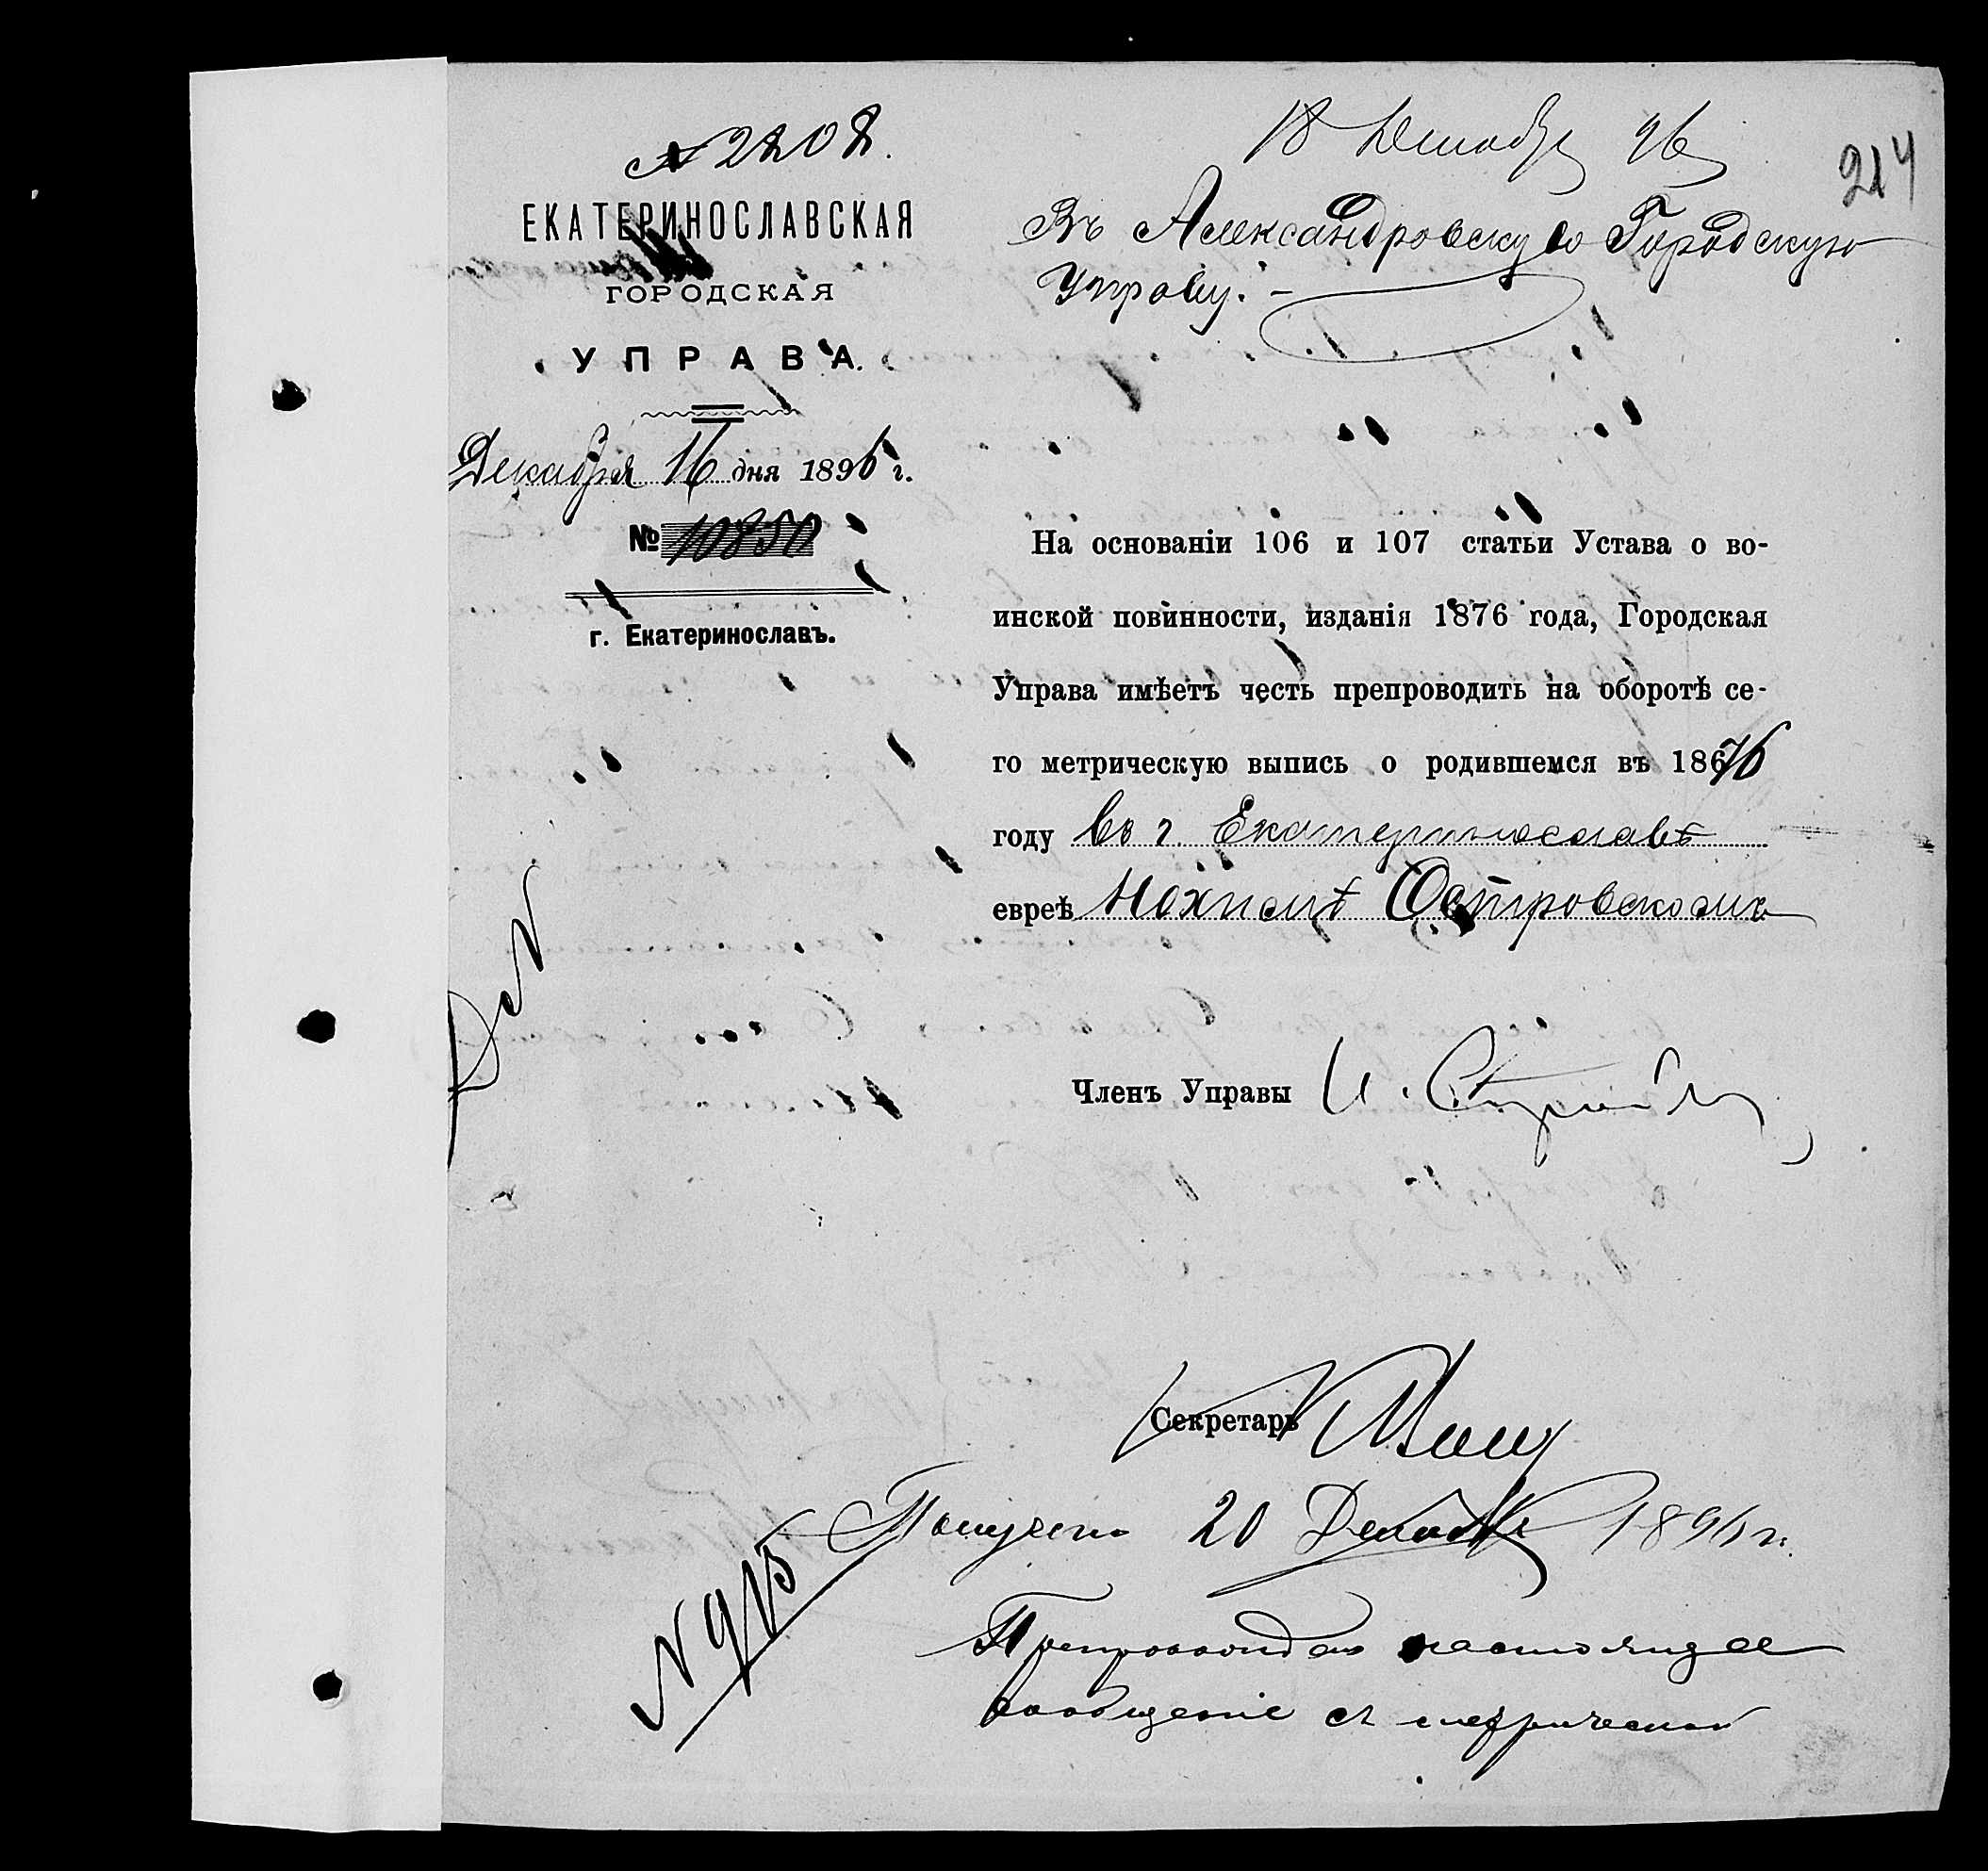 № 2208.
ЕКАТЕРИНОСЛАВСКАЯ
ГОРОДСКАЯ
УПРАВА.
Декабря 16 дня 1896 г.
№ 10850
г. Екатеринославъ.
18 Декабр 96
214
Въ Александровскую Городскую
Управу.
На основаніи 106 и 107 статьи Устава о во-
инской повинности, изданія 1876 года, Городская
Управа имѣетъ честь препроводить на оборотѣ се-
го метрическую выпись о родившемся въ 1876
году въ г. Екатеринославѣ
евреѣ Нохимѣ Островскомъ
Членъ Управы И.
Секретарь
Получено 20 Декабр 1896 г.
№ 915
Препровождая настоящее
сообщеніе съ метрической